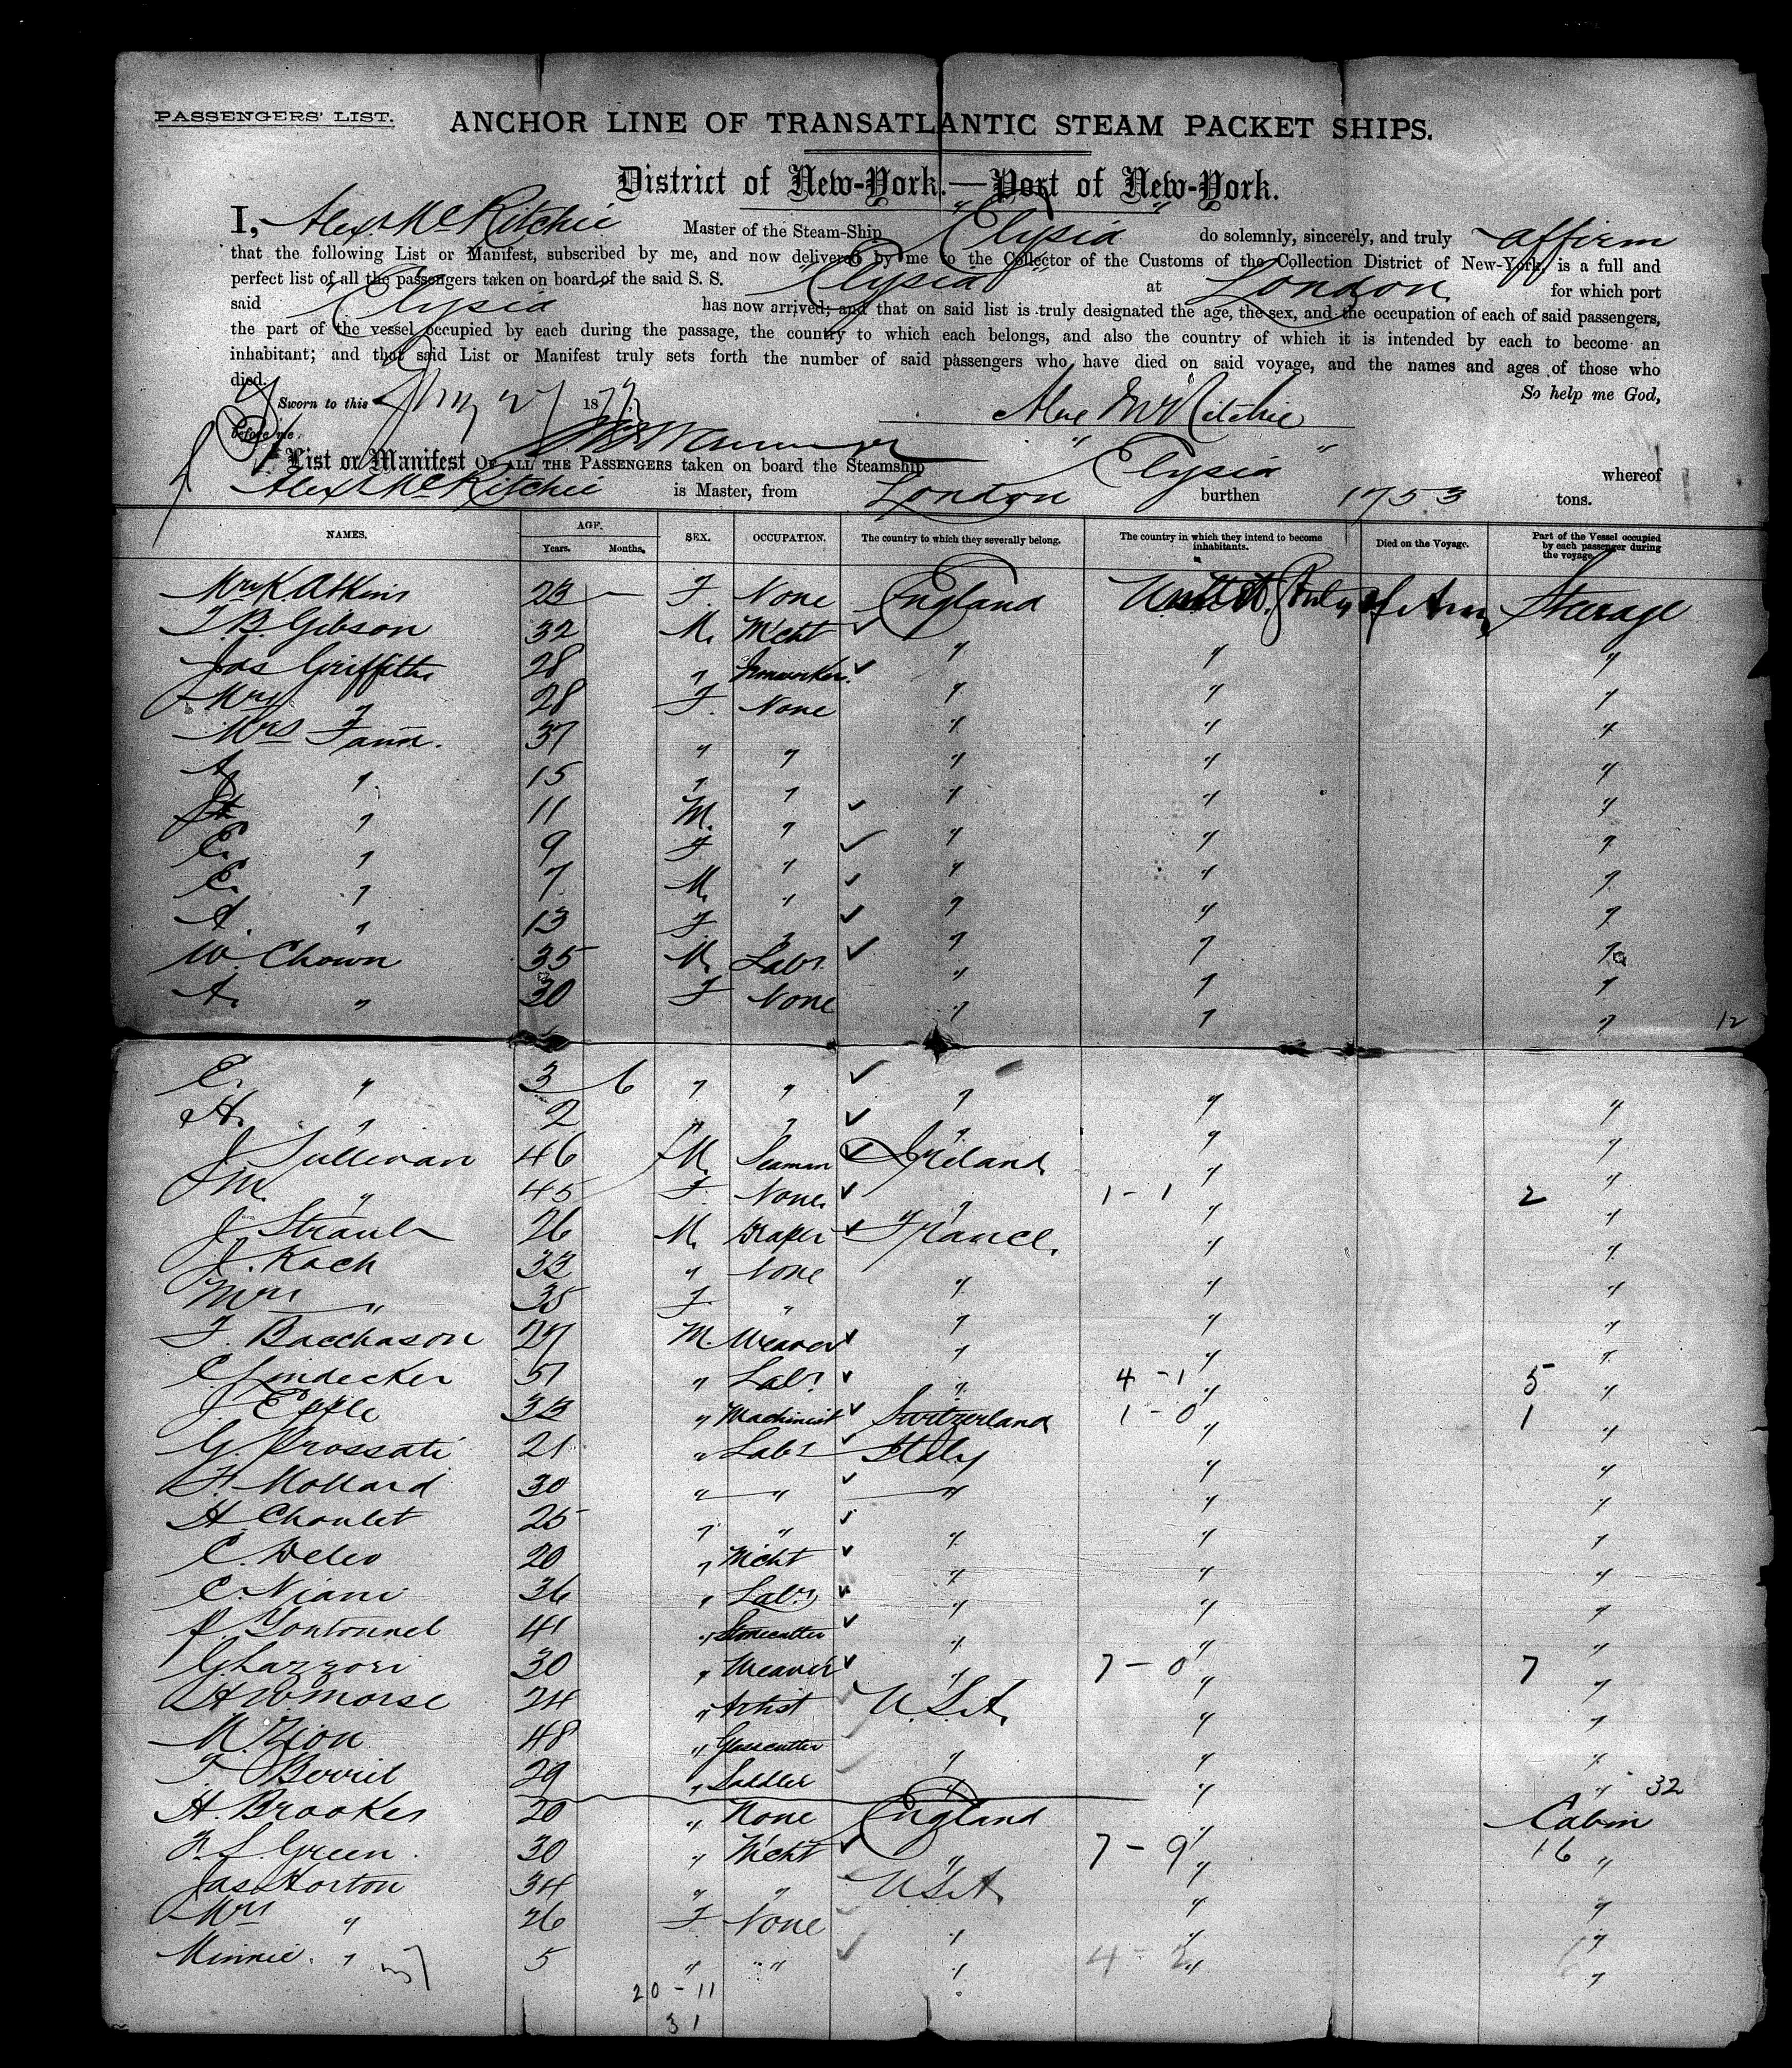 PASSENGERS' LIST.
ANCHOR LINE OF TRANSATLANTIC STEAM PACKET SHIPS.
District of New-York.—Port of New-York.
I, Alex. McRitchie Master of the Steam-Ship "Elysia" do solemnly, sincerely, and truly affirm
that the following List or Manifest, subscribed by me, and now delivered by me to the Collector of the Customs of the Collection District of New-York, is a full and
perfect list of all the passengers taken on board of the said S. S. "Elysia" at London for which port
said "Elysia" has now arrived; and that on said list is truly designated the age, the sex, and the occupation of each of said passengers,
the part of the vessel occupied by each during the passage, the country to which each belongs, and also the country of which it is intended by each to become an
inhabitant; and that said List or Manifest truly sets forth the number of said passengers who have died on said voyage, and the names and ages of those who
died. So help me God,
Sworn to this 187 Alex McRitchie
before me.
List or Manifest OF ALL THE PASSENGERS taken on board the Steamship "Elysia" whereof
Alex. McRitchie is Master, from London burthen 1753 tons.
NAMES. AGE. Years. Months. SEX. OCCUPATION. The country to which they severally belong. The country in which they intend to become inhabitants. Died on the Voyage. Part of the Vessel occupied by each passenger during the voyage.
Mrs K. Atkins 23 — F. None England United States of Am. Steerage
T. B. Gibson 32 M. Mcht ✓ " " "
Jas Griffiths 28 " Ironworker ✓ " " "
Mrs " 28 F. None " " "
Mrs Fann. 37 " " " " "
A. " 15 " " " " "
" 11 M. " ✓ " " "
C. " 9 F " ✓ " " "
E. " 7 M. " ✓ " " "
A. " 13 F. " ✓ " " "
W. Chown 35 M. Labr. ✓ " " "
A. " 30 F None " " " 12
E. " 3 6 " " ✓ " " "
H. " 2 " " ✓ " " "
J. Sullivan 46 M. Seaman ✓ Ireland " "
M. " 45 F. None ✓ " 1 - 1 " 2
J. Straub 26 M. Draper ✓ France. " "
J. Koch 33 " None " " "
Mrs " 35 F. " " " "
F. Bacchason 27 M. Weaver ✓ " " "
C. Lindecker 51 " Labr. ✓ " 4 - 1 " 5 "
J. Egle 33 " Machinist ✓ Switzerland 1 - 0 " 1 "
G. Prossati 21 " Labr ✓ Italy " "
F. Mollard 30 " " ✓ " " "
H. Choulet 25 " " ✓ " " "
C. Deleo 20 " Mcht ✓ " " "
C. Niani 36 " Labr. ✓ " " "
P. Gontonnel 41 " Stonecutter ✓ " " "
G. Lazzori 30 " Weaver ✓ " 7 - 0 " 7 "
H. W. Morse 24 " Artist ✓ U.S.A. " "
M. Zion 48 " Glasscutter ✓ " " "
F. Berril 29 " Saddler ✓ " " " 32
H. Brookes 20 " None England " Cabin
F. S. Green. 30 " Mcht ✓ " 7 - 9 " 16 "
Jas. Horton 34 " " ✓ U.S.A. " "
Mrs " 26 F None ✓ " " "
Minnie. " 5 " " ✓ " 4 - 2 " "
20 - 11
31